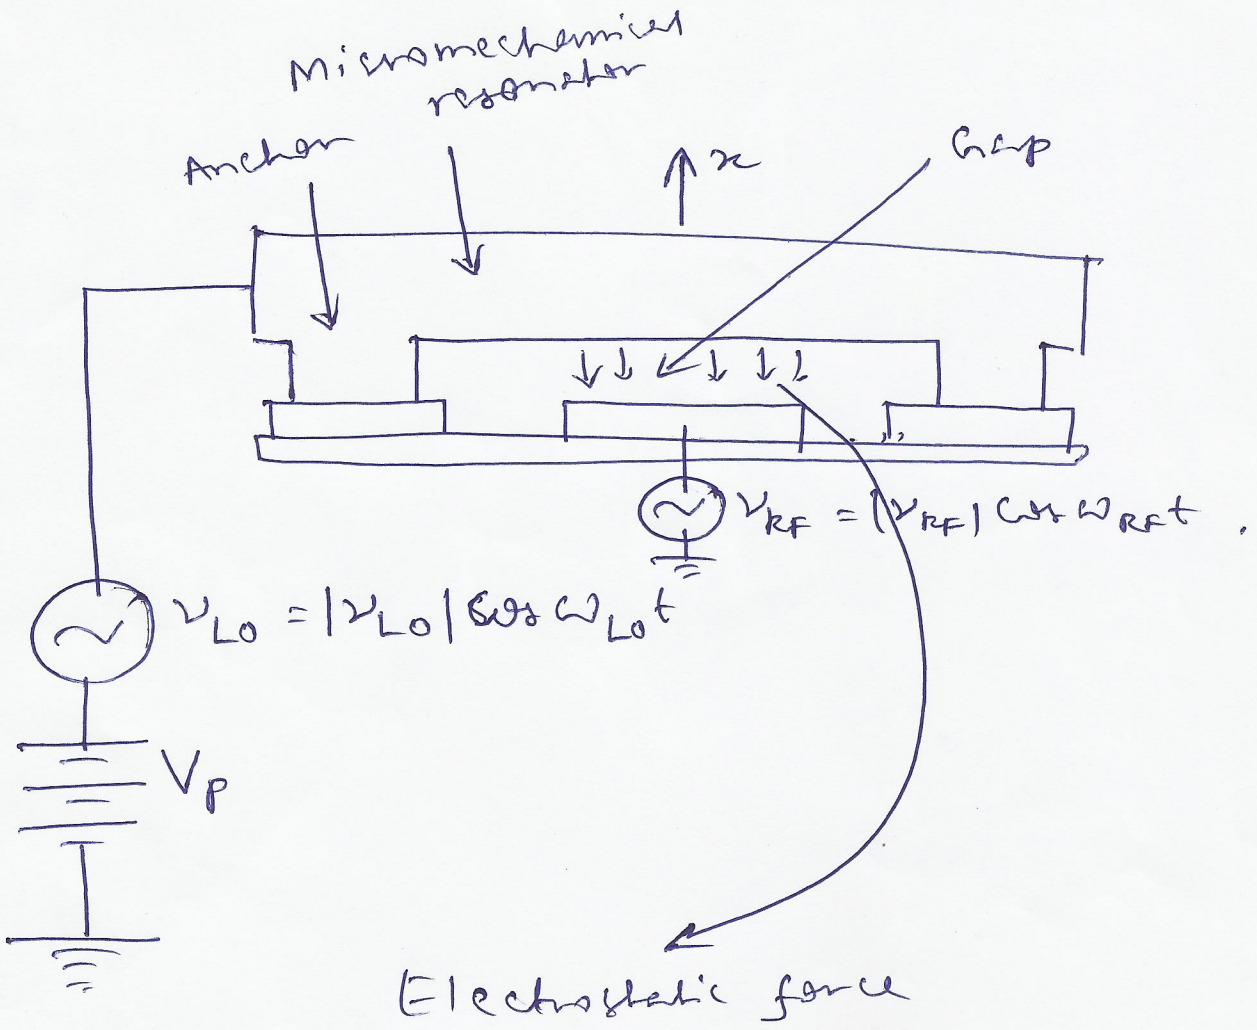 Micromechanical
resonator
Anchor
x
Gap
v_RF = |v_RF| cos ω_RF t .
v_LO = |v_LO| cos ω_LO t
V_P
Electrostatic force